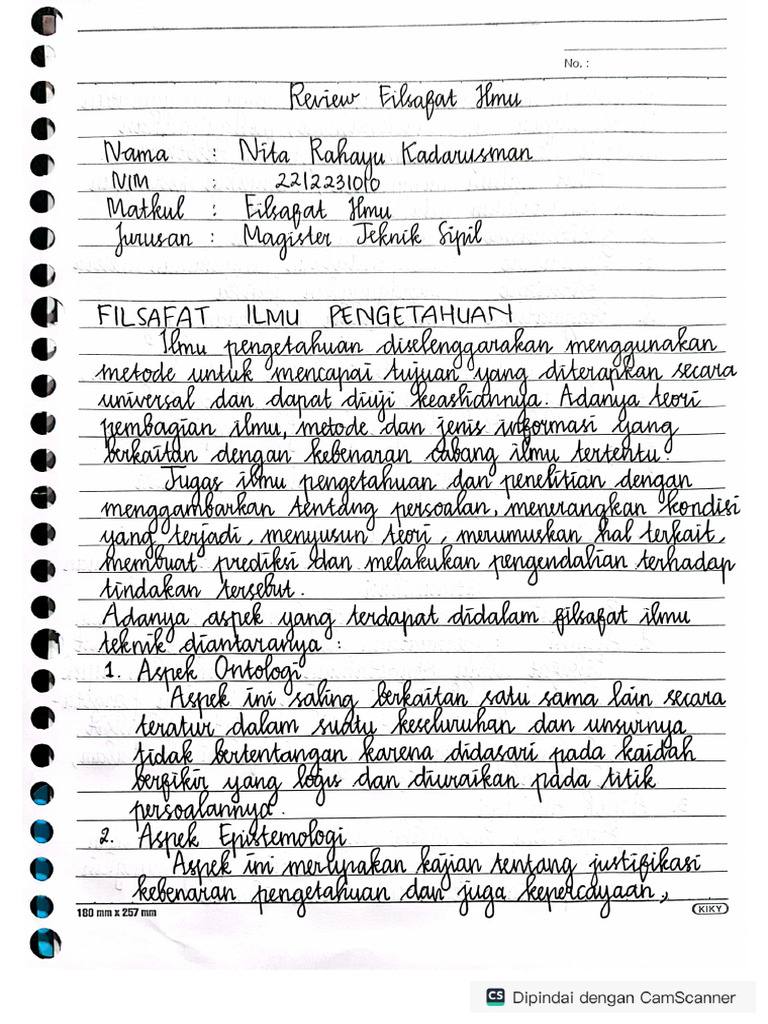 No. :
Review Filsafat Ilmu
Nama : Nita Rahayu Kadarusman
NIM : 2212231010
Matkul : Filsafat Ilmu
Jurusan : Magister Teknik Sipil
FILSAFAT ILMU PENGETAHUAN
Ilmu pengetahuan diselenggarakan menggunakan
metode untuk mencapai tujuan yang diterapkan secara
universal dan dapat diuji keasliannya. Adanya teori
pembagian ilmu, metode dan jenis informasi yang
berkaitan dengan kebenaran cabang ilmu tertentu.
Tugas ilmu pengetahuan dan penelitian dengan
menggambarkan tentang persoalan, menerangkan kondisi
yang terjadi, menyusun teori, merumuskan hal terkait,
membuat prediksi dan melakukan pengendalian terhadap
tindakan tersebut.
Adanya aspek yang terdapat didalam filsafat ilmu
teknik diantaranya :
1. Aspek Ontologi
Aspek ini saling berkaitan satu sama lain secara
teratur dalam suatu keseluruhan dan unsurnya
tidak bertentangan karena didasari pada kaidah
berfikir yang logis dan diuraikan pada titik
persoalannya.
2. Aspek Epistemologi
Aspek ini merupakan kajian tentang justifikasi
kebenaran pengetahuan dan juga kepercayaan,
180 mm x 257 mm
KIKY
CS Dipindai dengan CamScanner